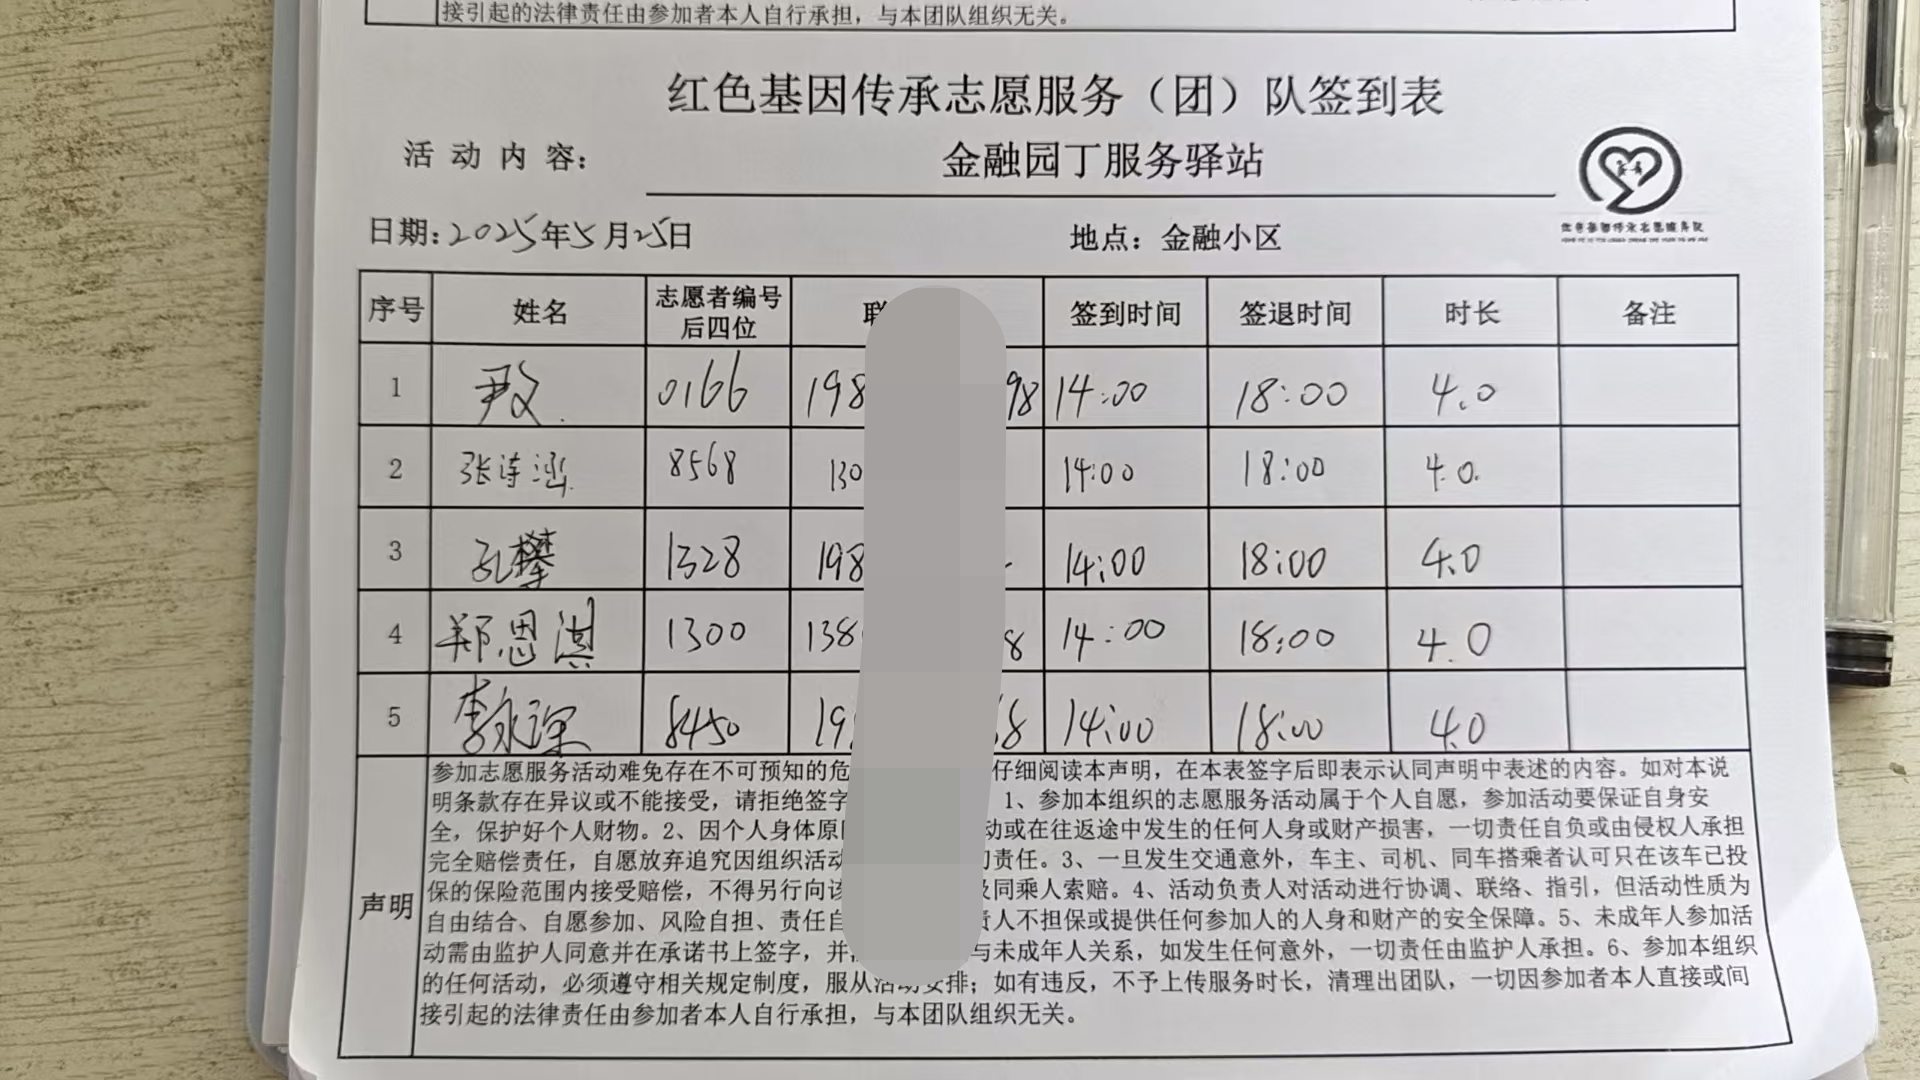 接引起的法律责任由参加者本人自行承担，与本团队组织无关。
红色基因传承志愿服务（团）队签到表
活动内容： 金融园丁服务驿站
日期：2025年5月25日 地点：金融小区
序号 姓名 志愿者编号后四位 联 签到时间 签退时间 时长 备注
1 尹文 0166 198 98 14:00 18:00 4.0
2 张诗涵 8568 130 14:00 18:00 4.0
3 孔攀 1328 198 14:00 18:00 4.0
4 郑思淇 1300 138 8 14:00 18:00 4.0
5 李永深 8450 19 68 14:00 18:00 4.0
声明
参加志愿服务活动难免存在不可预知的危 仔细阅读本声明，在本表签字后即表示认同声明中表述的内容。如对本说
明条款存在异议或不能接受，请拒绝签字 1、参加本组织的志愿服务活动属于个人自愿，参加活动要保证自身安
全，保护好个人财物。2、因个人身体原 动或在往返途中发生的任何人身或财产损害，一切责任自负或由侵权人承担
完全赔偿责任，自愿放弃追究因组织活动 责任。3、一旦发生交通意外，车主、司机、同车搭乘者认可只在该车已投
保的保险范围内接受赔偿，不得另行向该 及同乘人索赔。4、活动负责人对活动进行协调、联络、指引，但活动性质为
自由结合、自愿参加、风险自担、责任自 责人不担保或提供任何参加人的人身和财产的安全保障。5、未成年人参加活
动需由监护人同意并在承诺书上签字，并 与未成年人关系，如发生任何意外，一切责任由监护人承担。6、参加本组织
的任何活动，必须遵守相关规定制度，服从活动安排；如有违反，不予上传服务时长，清理出团队，一切因参加者本人直接或间
接引起的法律责任由参加者本人自行承担，与本团队组织无关。